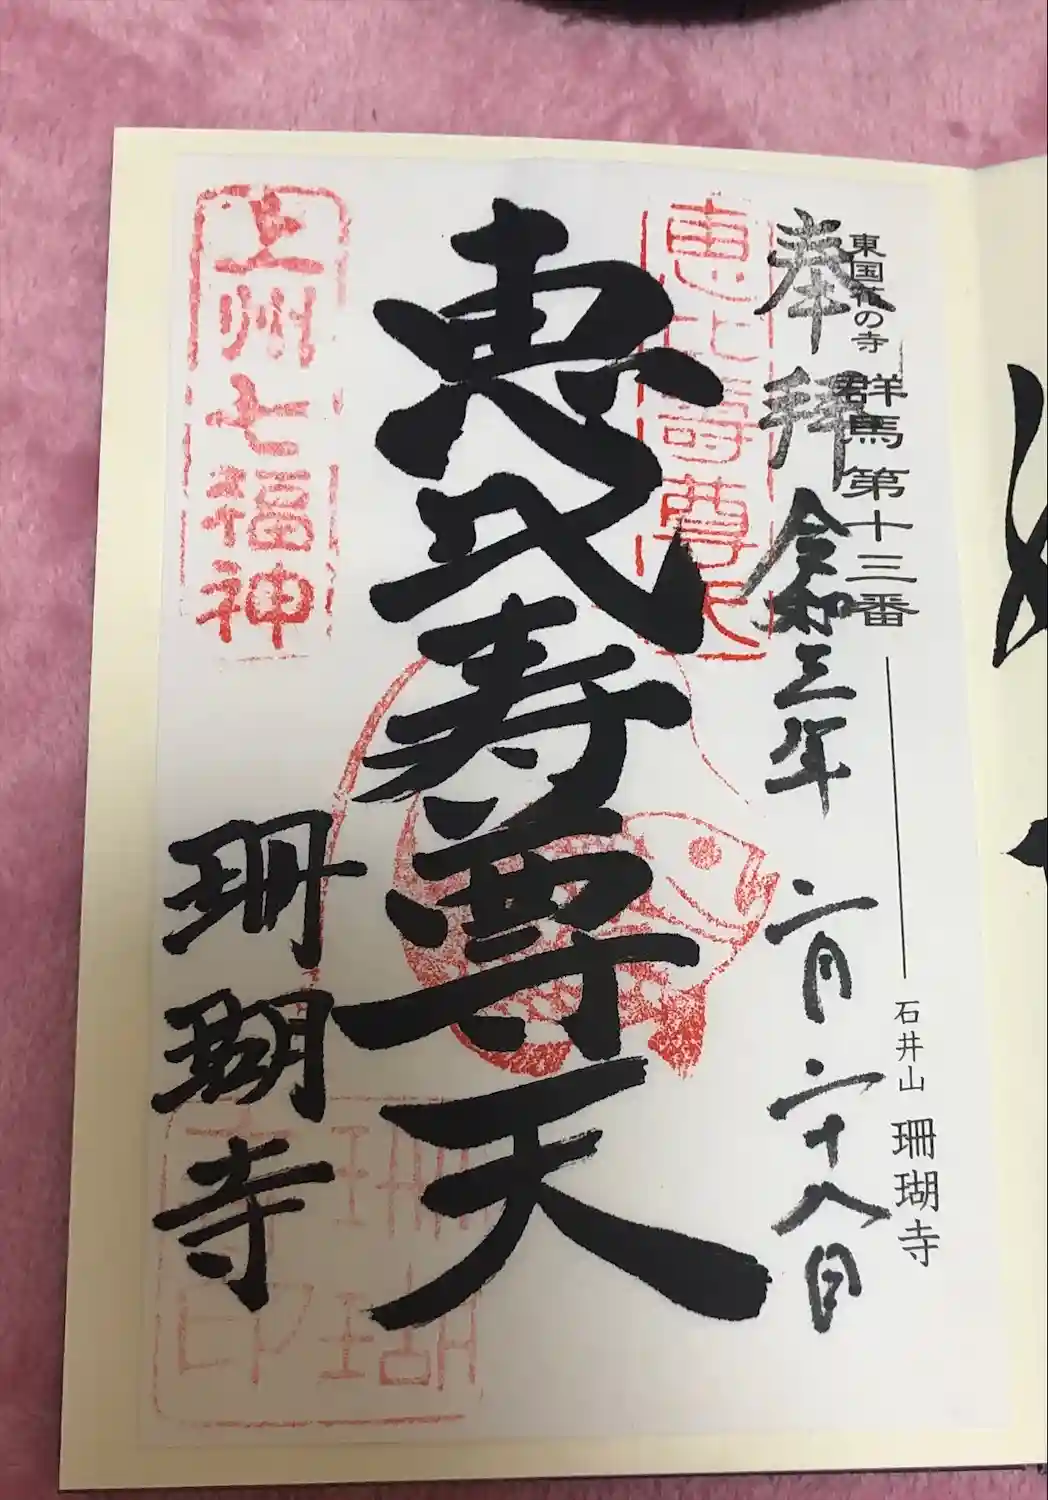 東国花の寺 群馬第十三番 石井山 珊瑚寺
奉拝 令和三年 二月二十八日
恵比寿尊天
恵比寿尊天
上州七福神
珊瑚寺
珊瑚寺印